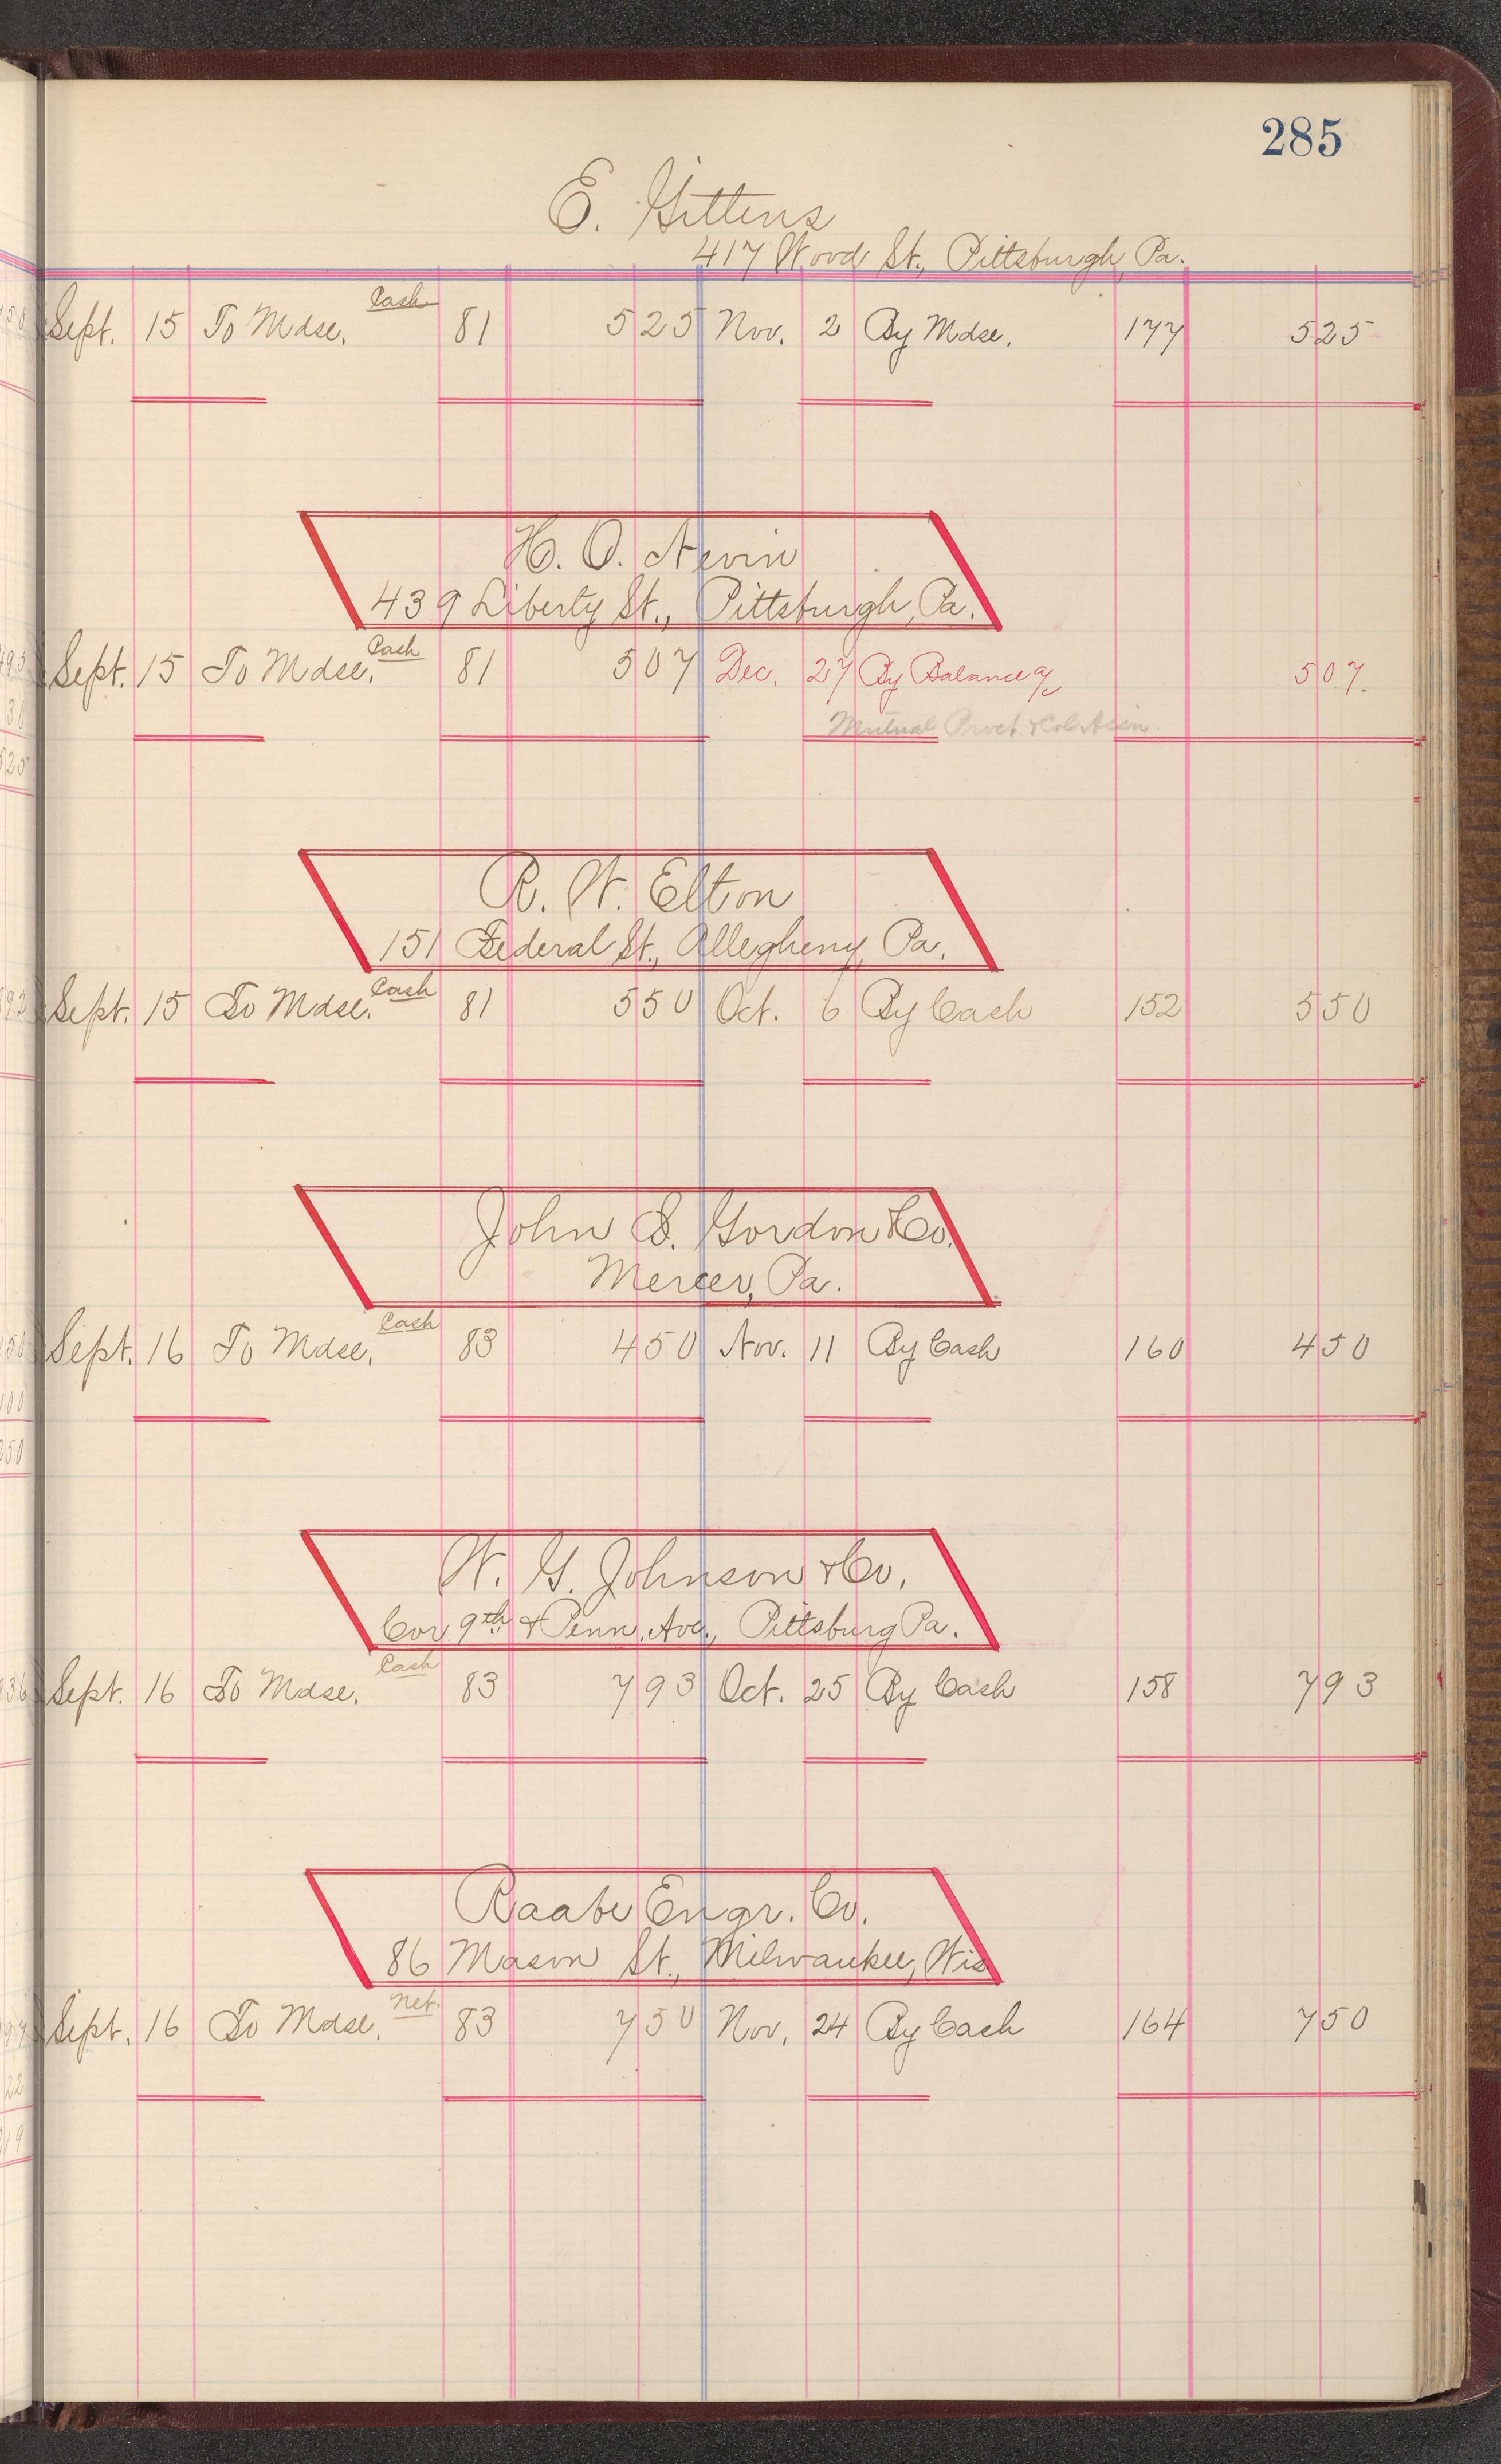 285
E. Gittens
417 Wood St., Pittsburgh, Pa.
Sept. 15 To Mdse. Cash 81 5 25 Nov. 2 By Mdse. 177 5 25
H. O. Nevin
439 Liberty St., Pittsburgh, Pa.
Sept. 15 To Mdse. Cash 81 5 07 Dec. 27 By Balance a/c 5 07.
Mutual Proct. & Col. Assn.
R. W. Elton
151 Federal St., Allegheny, Pa.
Sept. 15 To Mdse. Cash 81 5 50 Oct. 6 By Cash 152 5 50
John S. Gordon & Co.
Mercer, Pa.
Sept. 16 To Mdse. Cash 83 4 50 Nov. 11 By Cash 160 4 50
W. G. Johnson & Co.
Cor. 9th & Penn. Ave., Pittsburg Pa.
Sept. 16 To Mdse. Cash 83 7 93 Oct. 25 By Cash 158 7 93
Raabe Engr. Co.
86 Mason St., Milwaukee, Wis
Sept. 16 To Mdse. Net. 83 7 50 Nov. 24 By Cash 164 7 50